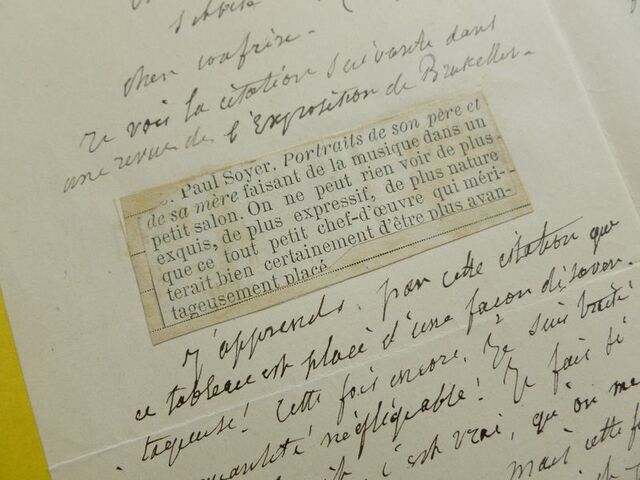 cher confrère.
Je vois la citation suivante dans
une revue de l'Exposition de Bruxelles.
Paul Soyer. Portraits de son père et
de sa mère faisant de la musique dans un
petit salon. On ne peut rien voir de plus
exquis, de plus expressif, de plus nature
que ce tout petit chef-d'œuvre qui méri-
terait bien certainement d'être plus avan-
tageusement placé
J'apprends, par cette citation que
ce tableau est placé d'une façon désavan-
tageuse! Cette fois encore, je suis traité
quantité négligeable! Je fais si
c'est vrai, qu'on me
Mais cette f